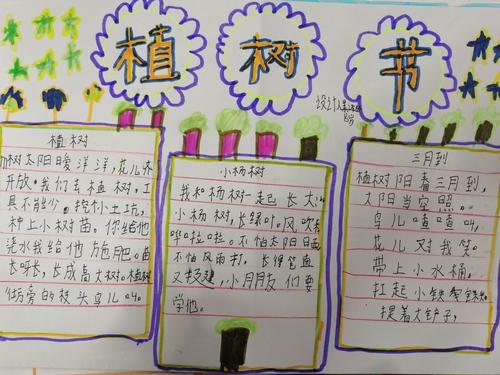 植树节
设计人
植树
树太阳暖洋洋,花儿齐
开放。我们去植树,工
具不能少。挖个土坑,
种上小树苗。你给他
浇水我给他施肥。苗
长呀长,长成高大树。植树
旁的枝头鸟儿叫。
小杨树
我和杨树一起长大
小杨树,长绿叶。风吹
哗啦啦。不怕太阳日晒
不怕风雨打。长得笔直
又挺建,小朋友们要
学他。
三月到
植树阳春三月到,
太阳当空照。
鸟儿喳喳叫,
花儿对我笑。
带上小水桶,
扛起小铁锹
提着大铲子,